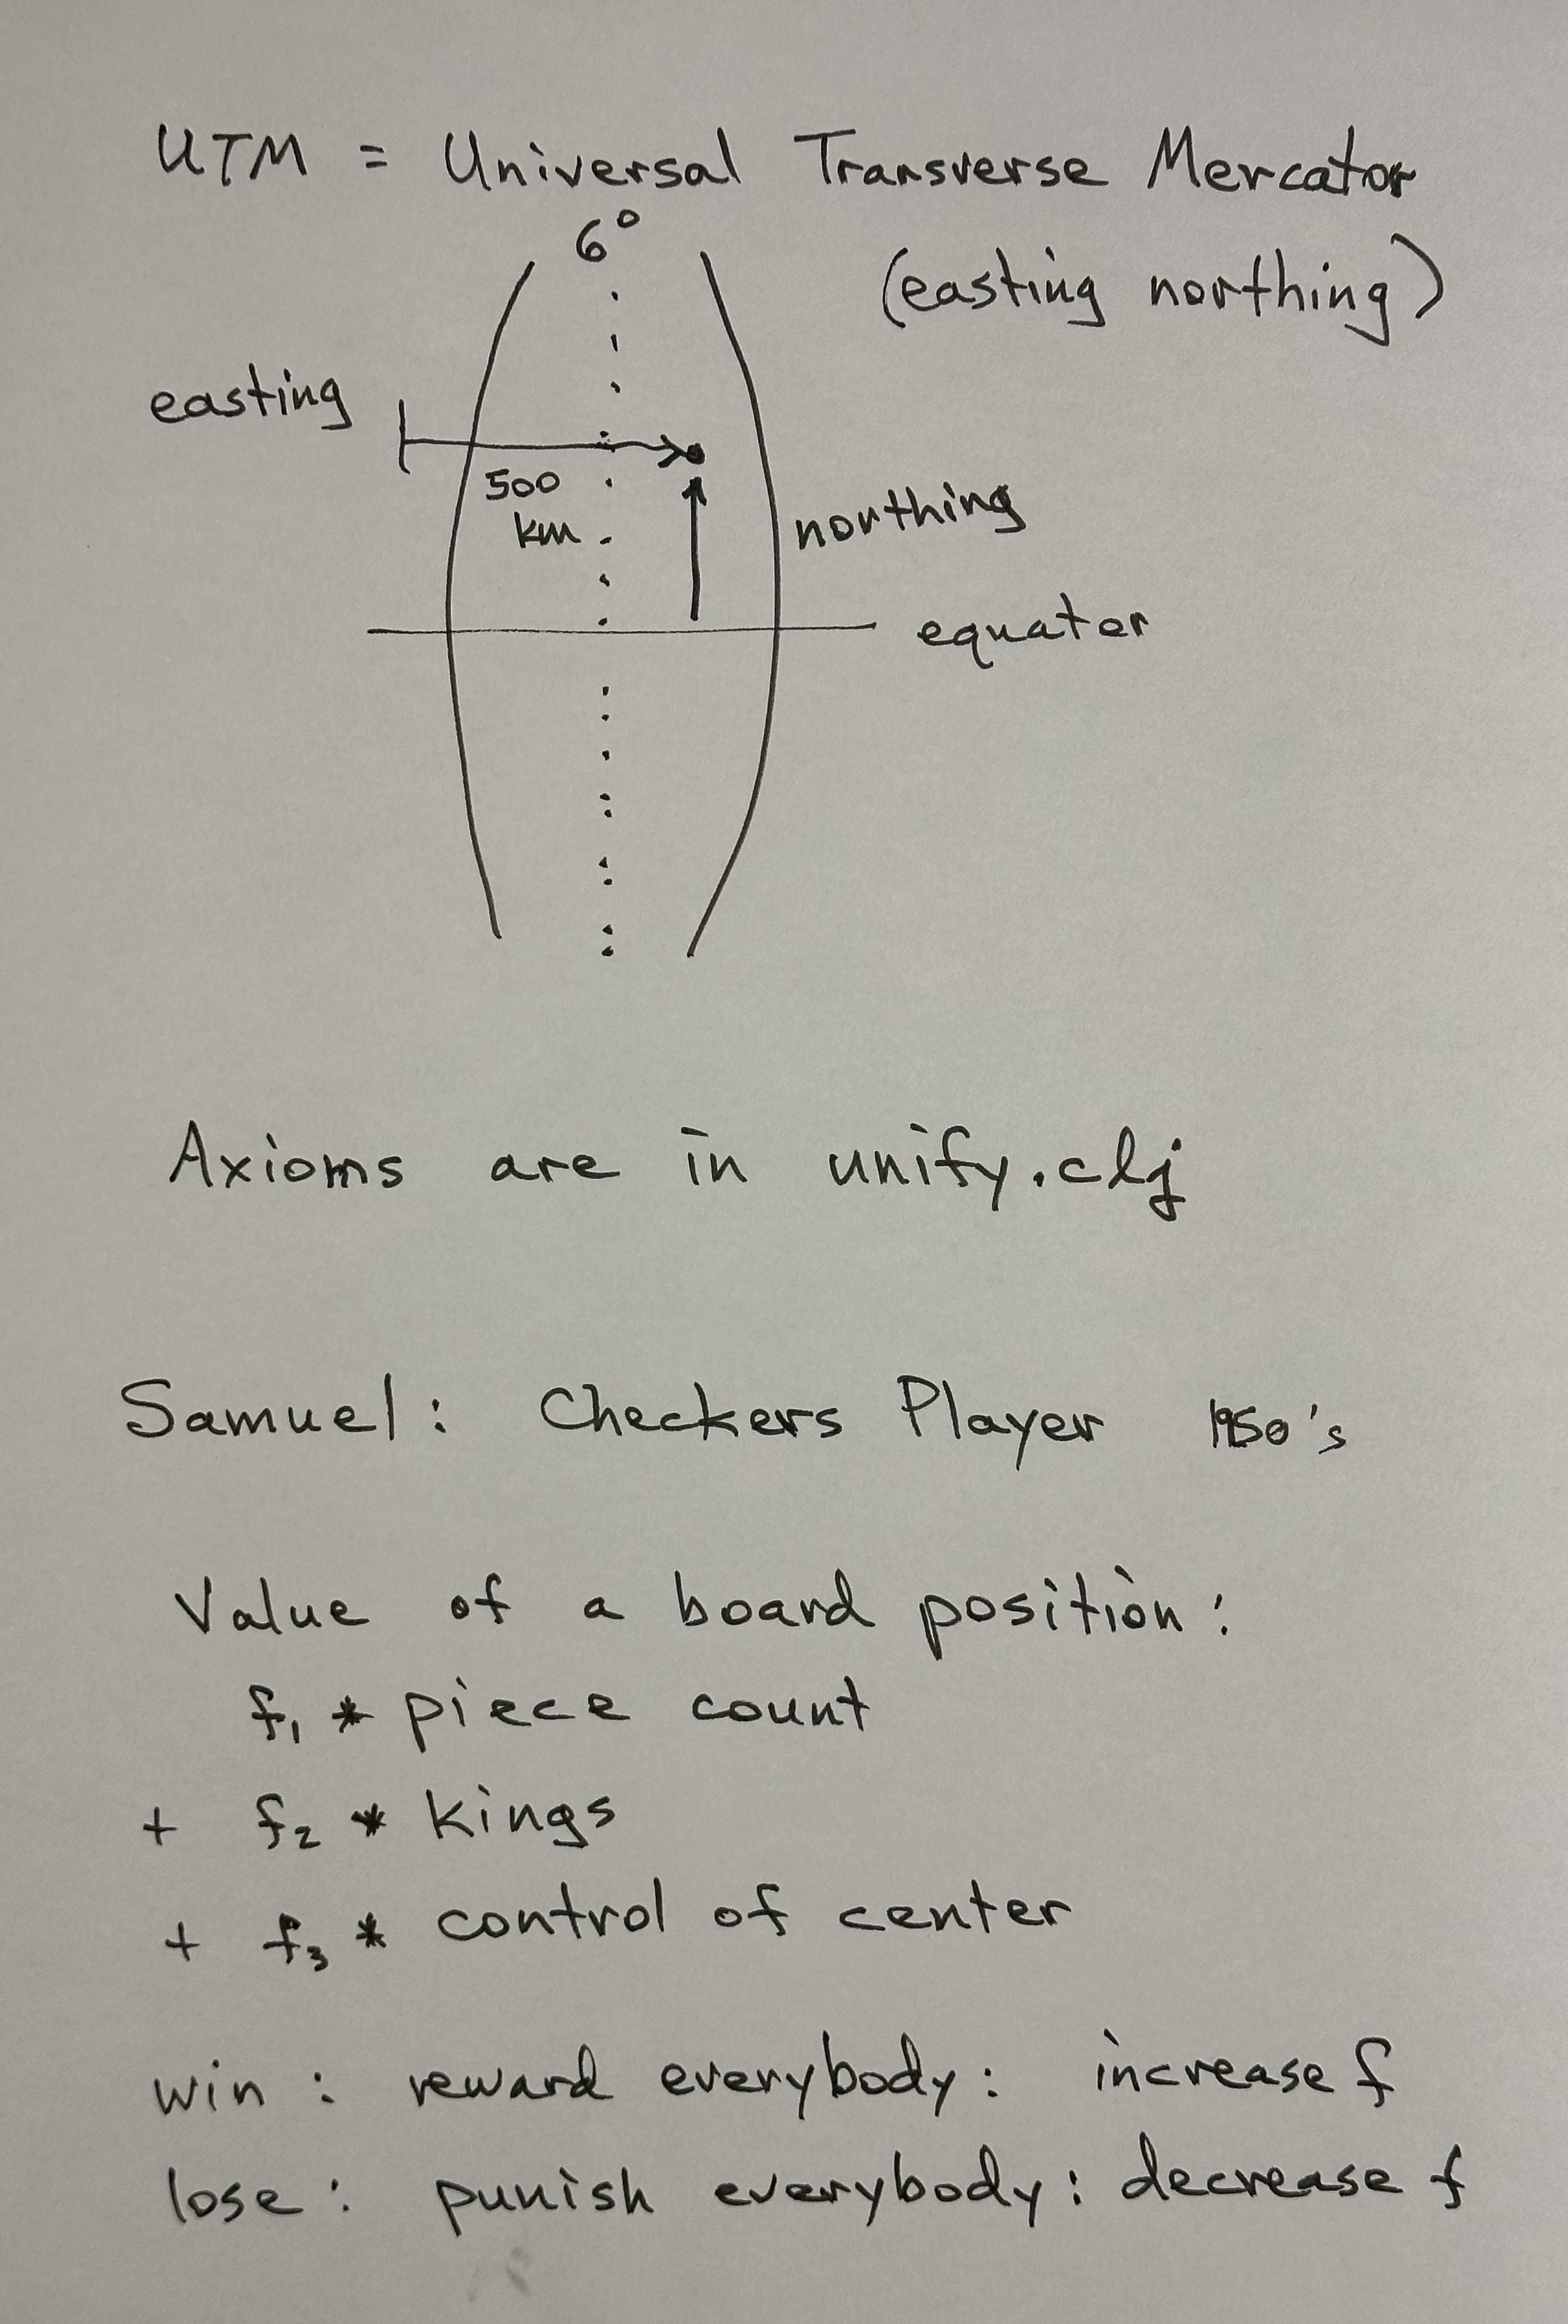 UTM = Universal Transverse Mercator
6°
(easting northing)
easting
500
km
northing
equator
Axioms are in unify.clj
Samuel: Checkers Player 1950's
Value of a board position:
f1 * piece count
+ f2 * kings
+ f3 * control of center
win: reward everybody: increase f
lose: punish everybody: decrease f